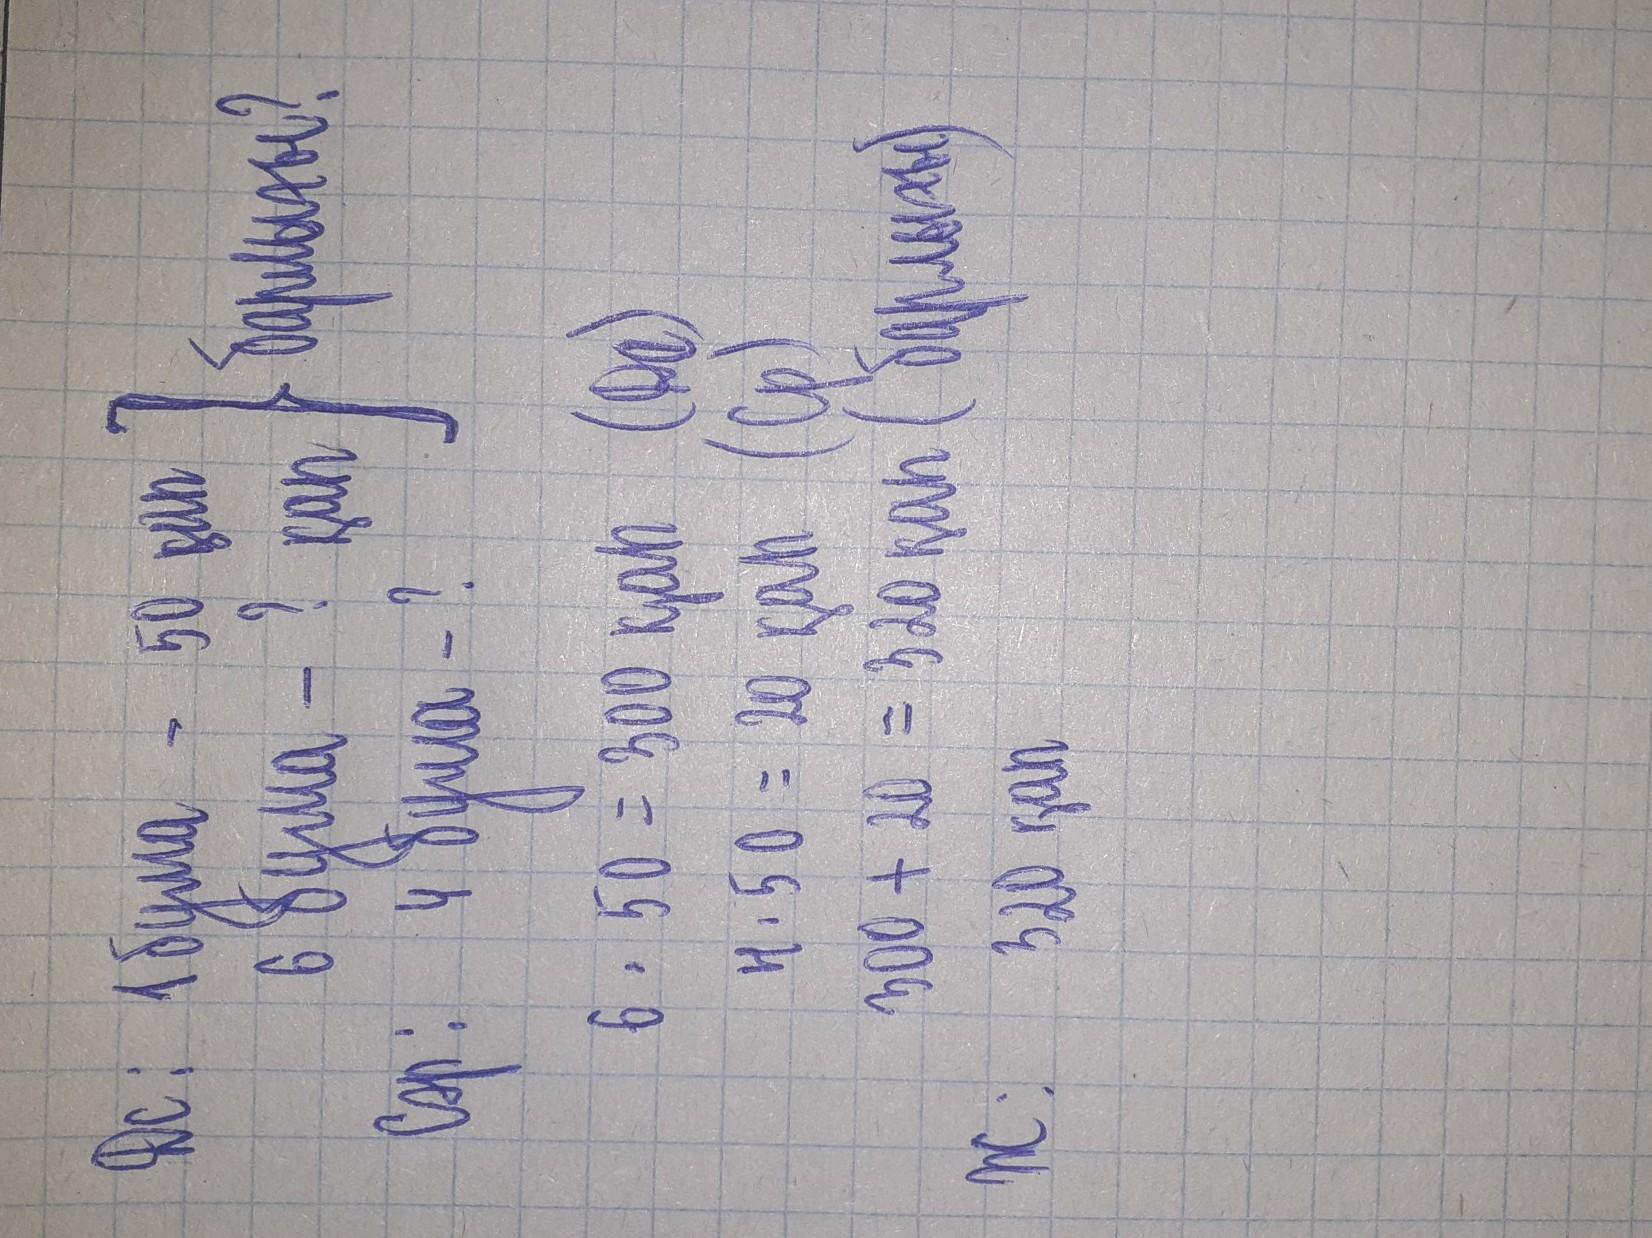 Дс: 1 бума - 50 қап
6 бума - ? қап } барлығы?
Сәр: 4 бума - ?
6 · 50 = 300 қап (Дс)
4 · 50 = 20 қап (Ср)
300 + 20 = 320 қап (барлығы)
Ж: 320 қап